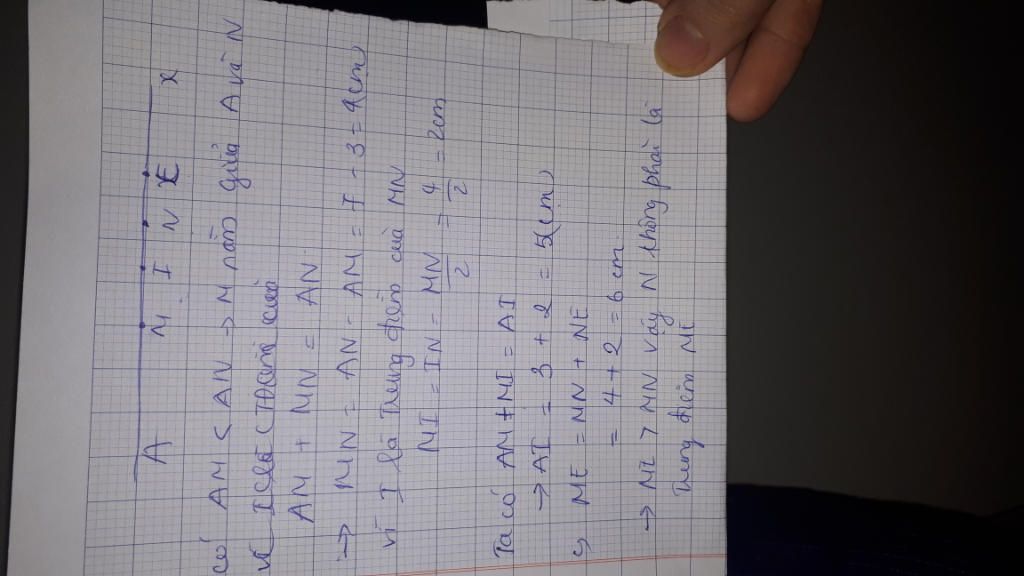 A M I N E x
có AM < AN → M nằm giữa A và N
vì I là
AM + MN = AN
→ MN = AN - AM = 7 - 3 = 4(cm)
vì I là Trung điểm của MN
MI = IN = MN/2 = 4/2 = 2cm
Ta có AM + MI = AI
→ AI = 3 + 2 = 5(cm)
c, ME = MN + NE
= 4 + 2 = 6 cm
→ ME > MN vậy N không phải là
Trung điểm ME